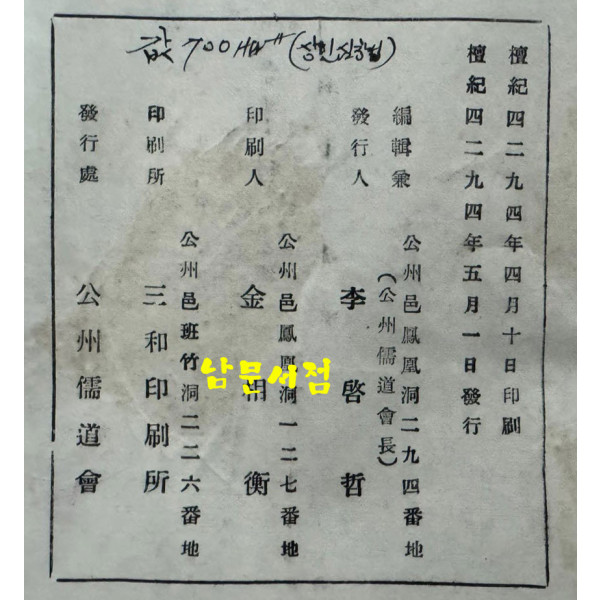 檀紀四二九四年四月十日印刷
檀紀四二九四年五月一日發行
公州邑鳳凰洞二九四番地
編輯兼
發行人
(公州儒道會長)
李啓哲
公州邑鳳凰洞一二七番地
印刷人
金相衡
公州邑班竹洞二二六番地
印刷所
三和印刷所
發行處
公州儒道會
값 700
남문서점